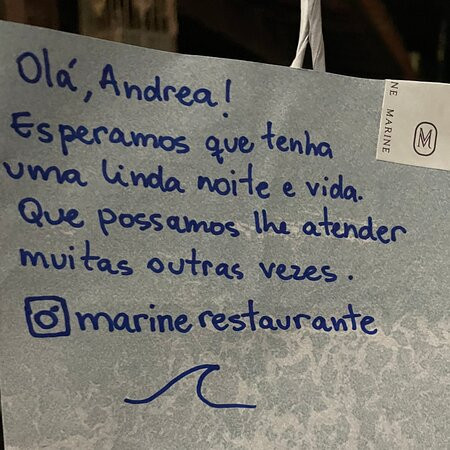 Olá, Andrea!
Esperamos que tenha
uma linda noite e vida.
Que possamos lhe atender
muitas outras vezes.
marinerestaurante
NE MARINE
M